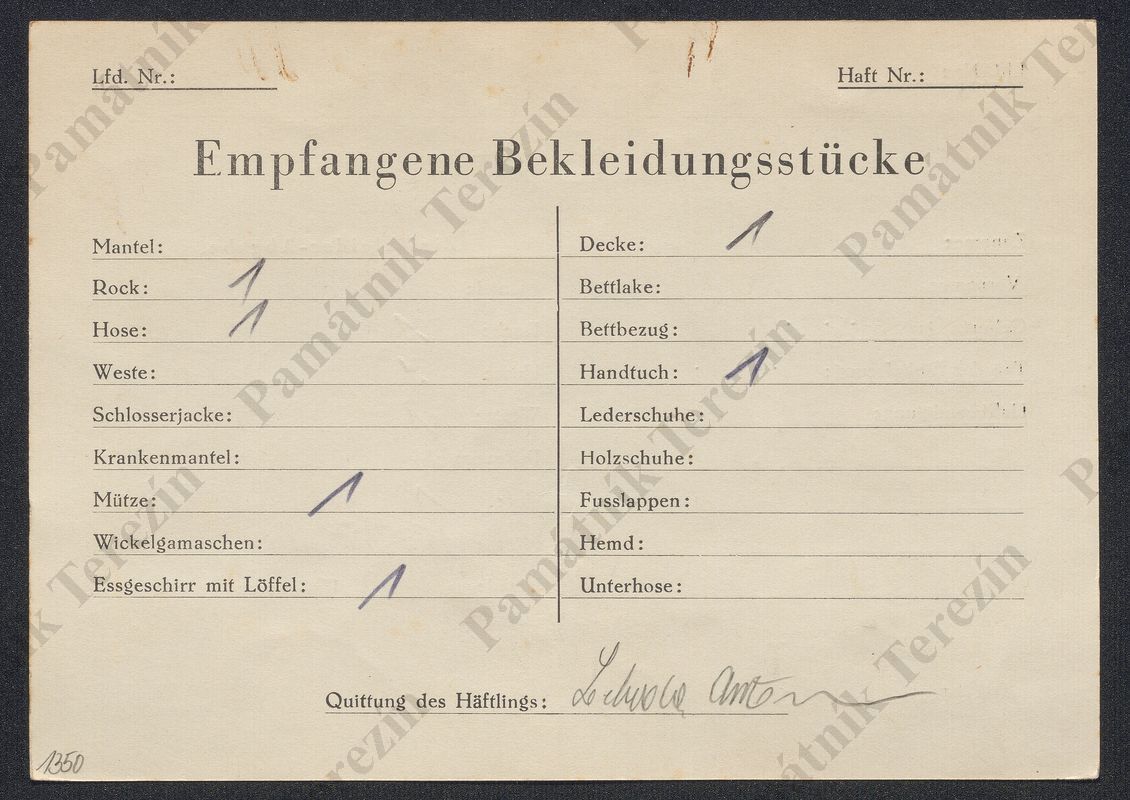 Lfd. Nr.:
Haft Nr.:
Empfangene Bekleidungsstücke
Mantel:
Rock: 1
Hose: 1
Weste:
Schlosserjacke:
Krankenmantel:
Mütze: 1
Wickelgamaschen:
Essgeschirr mit Löffel: 1
Decke: 1
Bettlake:
Bettbezug:
Handtuch: 1
Lederschuhe:
Holzschuhe:
Fusslappen:
Hemd:
Unterhose:
Quittung des Häftlings:
1350
Památník Terezín